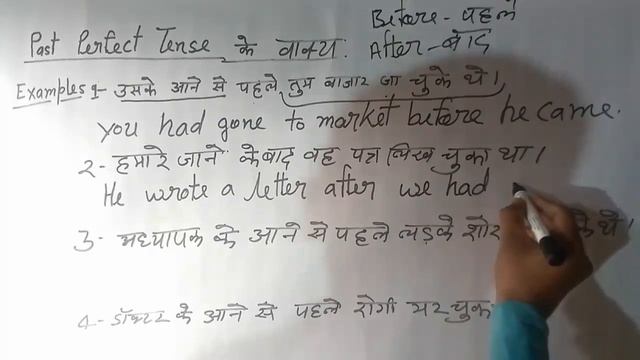 Before - पहले
Past Perfect Tense के वाक्य: After - बाद
Examples 1- उसके आने से पहले तुम बाजार जा चुके थे।
You had gone to market before he came.
2- हमारे जाने के बाद वह पत्र लिख चुका था।
He wrote a letter after we had
3- अध्यापक के आने से पहले लड़के शोर के थे।
4- डॉक्टर के आने से पहले रोगी मर चुक